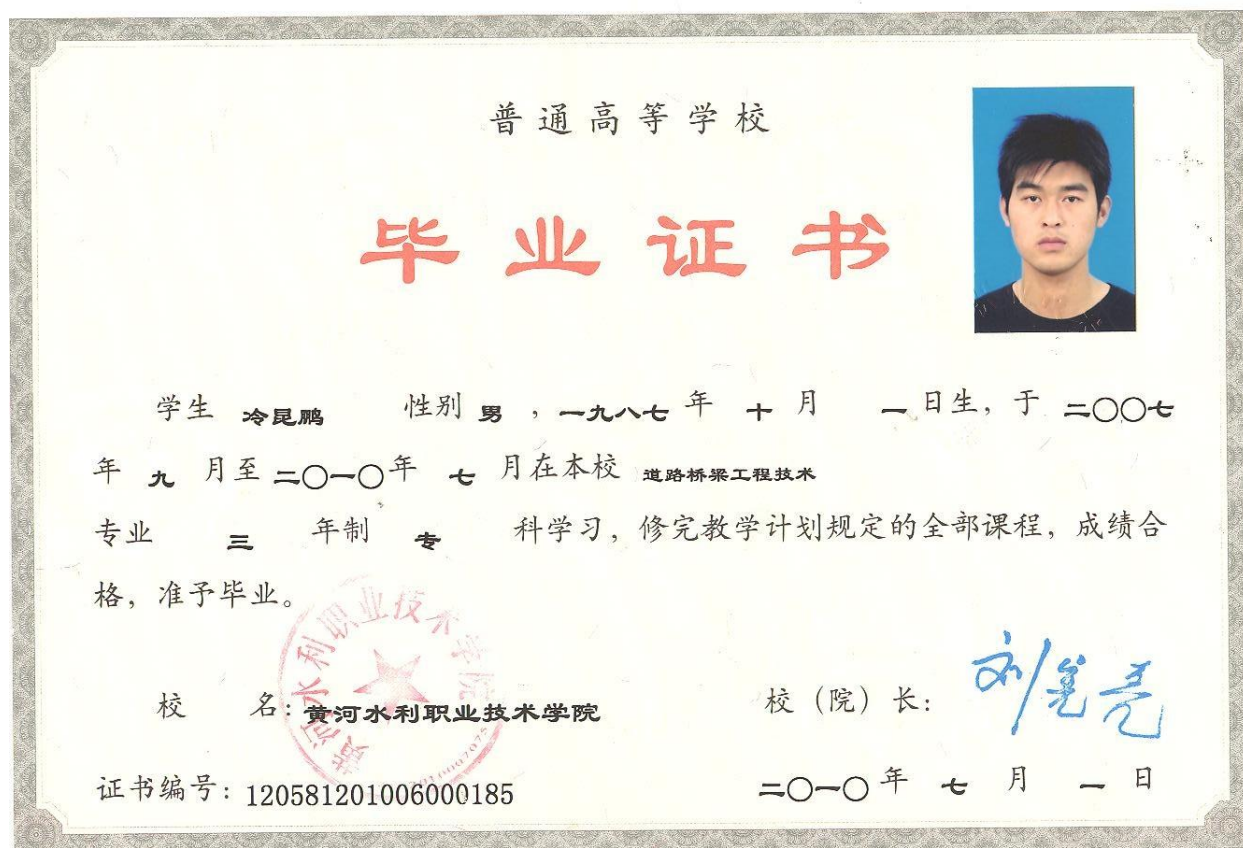 普通高等学校
毕业证书
学生 冷昆鹏 性别 男 ，一九八七 年 十 月 一 日生，于 二〇〇七
年 九 月至 二〇一〇年 七 月在本校 道路桥梁工程技术
专业 三 年制 专 科学习，修完教学计划规定的全部课程，成绩合
格，准予毕业。
黄河水利职业技术学院
校 名：黄河水利职业技术学院 校（院）长：
证书编号：120581201006000185 二〇一〇 年 七 月 一 日